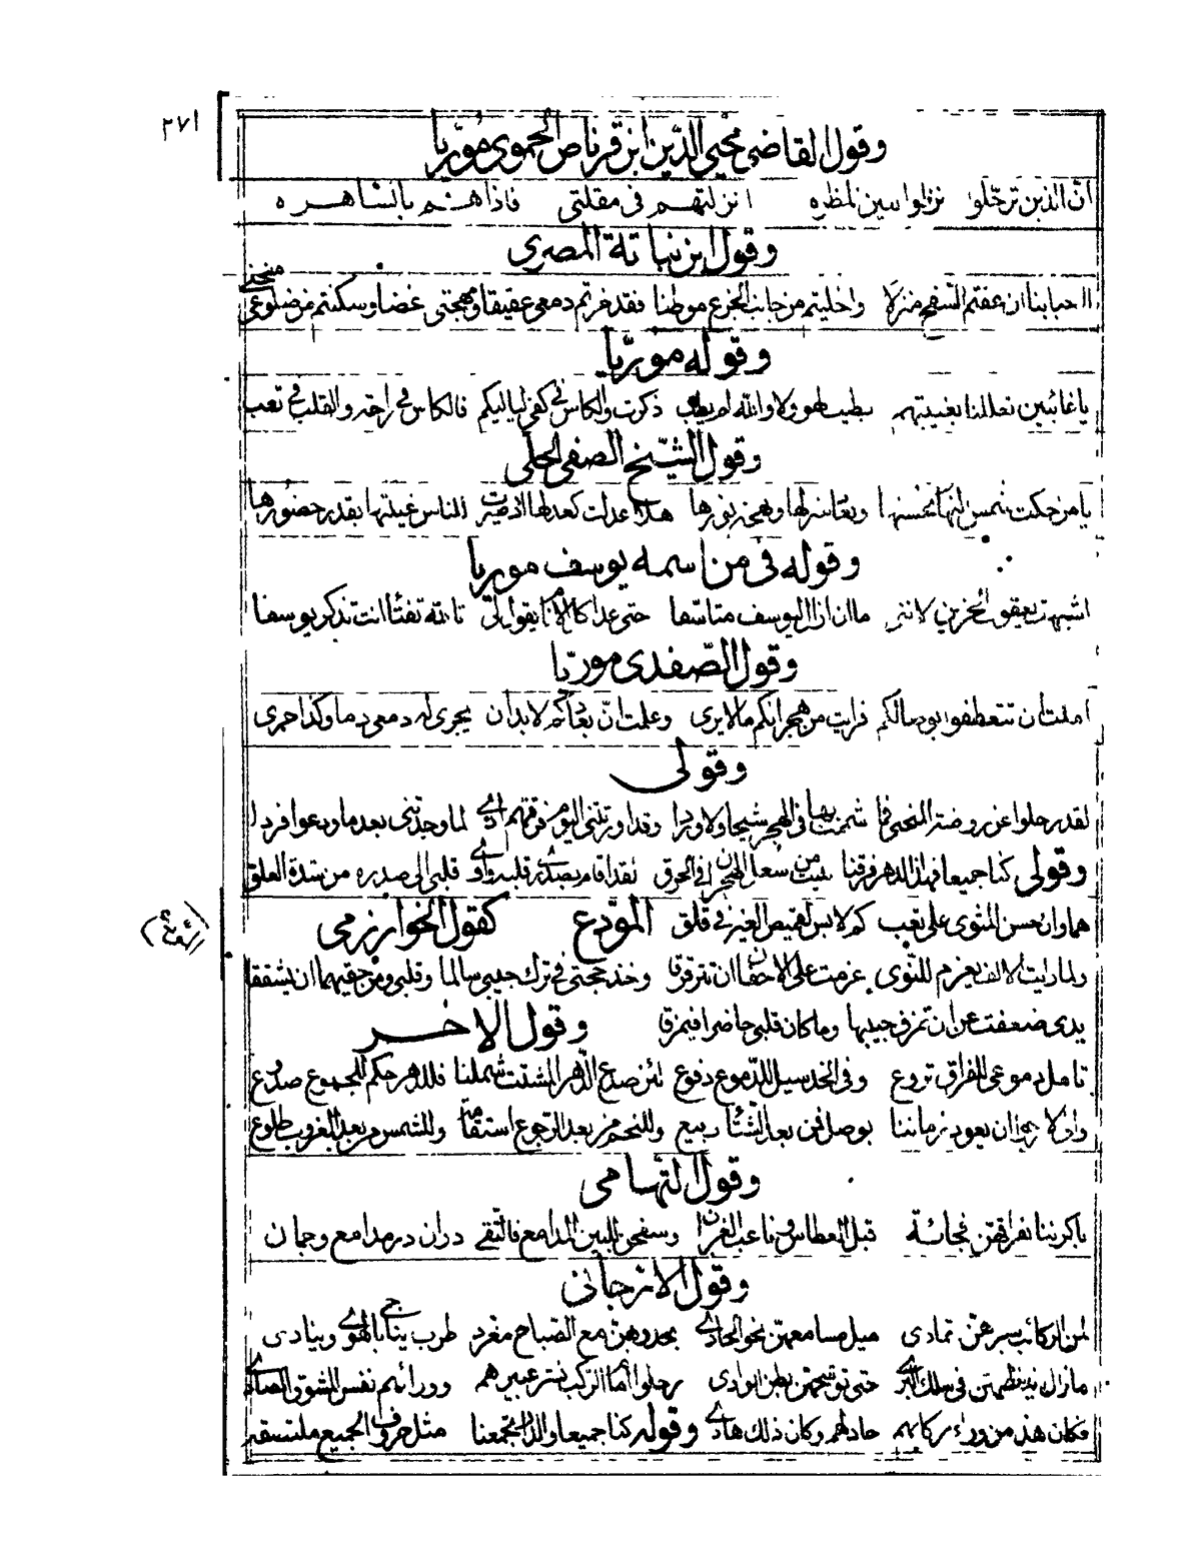 ٢٧١
وقول القاضي محيي الدين ابن قرناص الحموي مُورّيا
ان الذين ترحّلوا نزلوا بعين ناظره انزلتهم في مقلتي فاذا هم بالساهره
وقول ابن نباتة المصري
احبابنا ان عفتم السفح منزلا واخليتم من جانب الجزع موطنا فقد غرتم دمعي عقيقا ومهجتي غضا وسكنتم من ضلوعي منحنى
وقوله مورّيا
يا غائبين تعللنا بغيبتهم بطيب لهو ولا والله لم يطب ذكرت والكاس في كفي لياليكم فالكاس في راحة والقلب في تعب
وقول الشيخ الصفي الحلي
يا من حكت شمس النهار بحسنها وبعاد منزلها وبهجة نورها هلا عدلت كعدلها اذ صيرت للناس غيبتها بقدر حضورها
وقوله في من اسمه يوسف موريا
اشبهت يعقوب الحزين لانني ما ان ازال ليوسف متاسفا حتى غدا كل الانام يقول لي تالله تفتأ انت تذكر يوسفا
وقول الصّفدي مورّيا
املت ان تتعطفوا بوصالكم فرايت من هجرانكم ما لا يرى وعلمت انّ بعادكم لا بد ان يجري له دمعي دما وكذا جرى
وقولي
لقد رحلوا عن روضة المنحنى فما شممت بها في الهجر شيحا ولا وردا وقد اورثتني اليوم فرقتهم لما وجدتني بعد ما ودعوا فردا
وقولي كنا جميعا فهذا الدهر فرقنا بيت من شعل الهجران في الحرق نقد اقام بصدري قلبه واوى قلبي الى صدره من شدة العلق
هما وان حسن المثوى على تعب كم لابس لقميص الغير في قلق المودع كقول الخوارزمي
ولما رايت الالف يعزم للنوى عزمت على الاجفان ان تترقرقا وخذ حجتي في ترك جيبي سالما وقلبي ومن حقيهما ان يشققا
يدي ضعفت عن ان تمزق جيبها وما كان قلبي حاضرا فيمزقا وقول الاخر
تامل دموعي للفراق تروع وفي الخد سيل للدموع دفوع لئن صدع الدهر المشتت شملنا فللدهر حكم للجموع صدوع
واني لارجو ان يعود زماننا بوصل فمن بعد الشتاء ربيع وللنجم من بعد الرجوع استقامة وللشمس من بعد الغروب طلوع
وقول التهامي
باكرننا بفراقهن فجائة قبل العطاس وناعب الغربان وسفحن للبين المدامع فالتقى دران در مدامع وجمان
وقول الارجاني
لمن الركائب سيرهن تمادي ميل مسامعهن نحو الحادي يحدو بهن مع الصباح مغرد طرب يناجي بالهوى وينادي
ما زال ينظمهن في سلك السرى حتى توشحهن بطن الوادي رحلوا امام الركب نشر عبيرهم وورائهم نفس المشوق الصادي
فكان هذا من وراء ركابهم حاد لهم وكان ذلك هادي وقوله كنا جميعا والدار تجمعنا مثل حروف الجميع ملتسقه